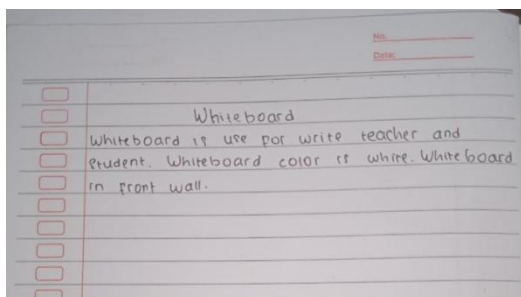 No.
Date:
Whiteboard
Whiteboard is use for write teacher and
student. Whiteboard color is white. Whiteboard
in front wall.